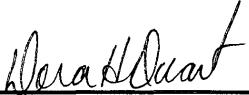 Dora H Quart